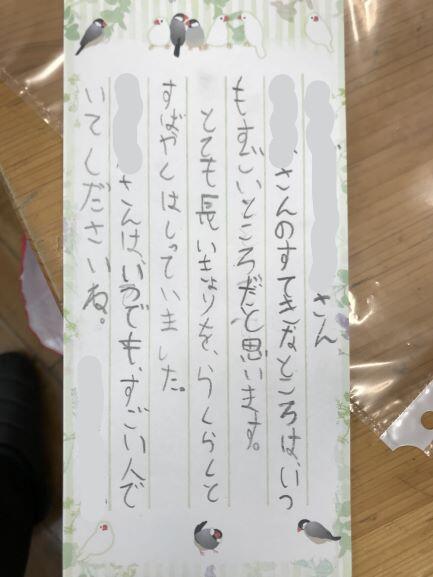 さん
さんのすてきなところは、いつ
もすごいところだと思います。
とても長いきょりを、らくらくと
すばやくはしっていました。
さんは、いつでも、すごい人で
いてくださいね。